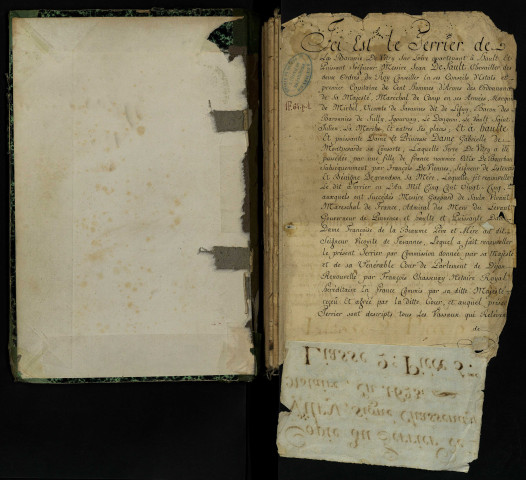 Ceci Est le Terrier de
La Baronie De Vitry sur Loire apartenant a Hault et
Puissant Seigneur Messire Jean De Saulx Chevallier des
deux Ordres du Roy Conseiller en ses Conseils d'Estats et
premier Capitaine de Cent hommes d'Armes des Ordonnances
de sa Majesté, Mareschal de Camp en ses Armées, Marquis
de Mirbel, Vicomte de Tavannes dit de Ligny, Baron des
Baronnies de Sully, Igournay, Le Donjon, La Vault, Saint
Jullien La Marche, et autres ses places, et à haulte
Et puissante Dame et Princesse Dame Gabrielle de
Montpezat sa Consorte, Laquelle Terre De Vitry a été
possedée par une fille de france nommée Alis de Bourbon
subsequemment par François De Vienne, Seigneur de
Et Benigne De grandson sa Mere, Laquelle fit renouveller
le dit Terrier en L'An Mil Cinq Cent Vingt Cinq,
auxquels ont succedés Messire Gaspard de Saulx Vicomte
Mareschal de France, Admiral des Mers du Levant
Gouverneur de Provence et Haulte et Puissante Dame
Dame Françoise de la Baume Pere et Mere dudit
Seigneur Vicomte de Tavannes, Lequel a fait renouveller
le present Terrier par Commission donnée par sa Majesté
et de sa Venérable Cour de Parlement de Dijon
Renouvellé par François Chassenay Notaire Royal
hereditaire En France Commis par sa ditte Majesté
reçu et agréé par la ditte Cour, et auquel present
Terrier sont descripts tous les Vassaux qui Relevent
de
Liasse 2e Piece 5e
Notaire, en 1625
Vitry, signé Chassenay
Copie du Terrier de